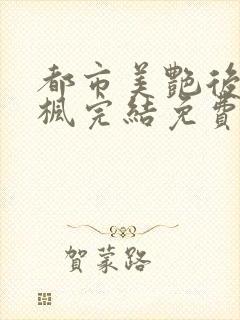 都市美艷後
楓完結免費
賀蒙路